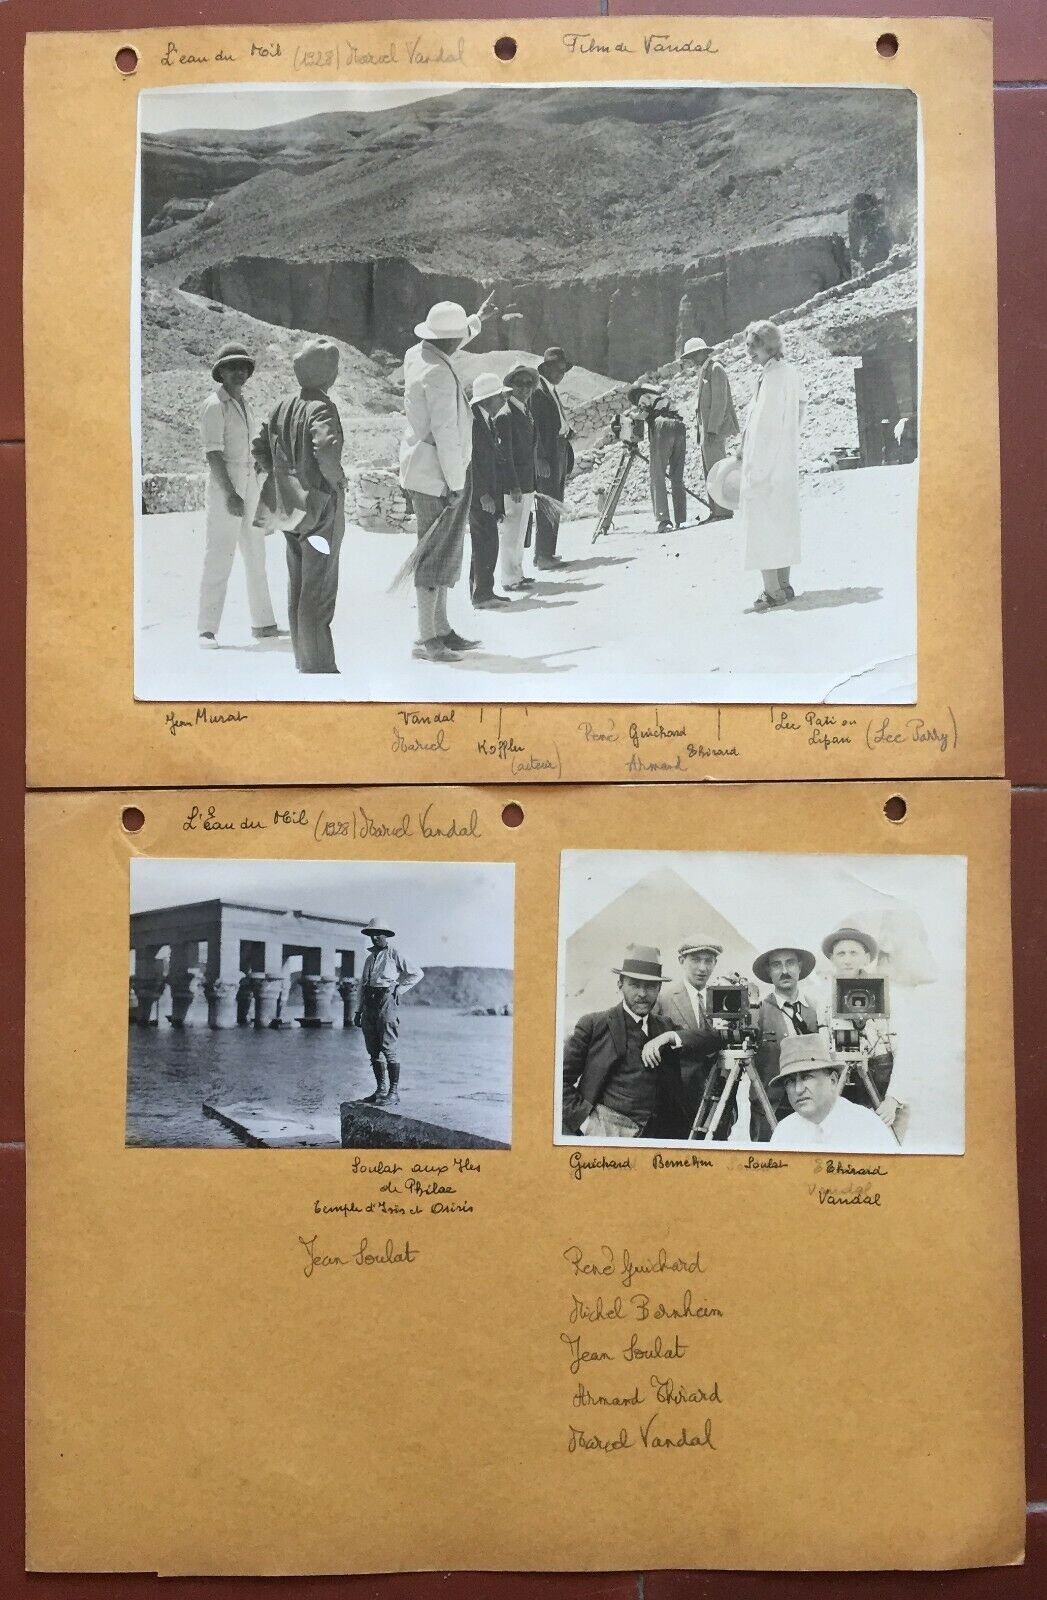 L'eau du Nil (1928) Marcel Vandal Film de Vandal
Jean Murat Vandal Lee Pati ou
Marcel Koffler René Guichard Lipan (Lee Parry)
(acteur) Armand Thirard
L'Eau du Nil (1928) Marcel Vandal
Soulat aux Iles
de Philae
Temple d'Isis et Osiris
Jean Soulat
Guichard Bernehm Soulat Thirard
Vandal
René Guichard
Michel Bernheim
Jean Soulat
Armand Thirard
Marcel Vandal